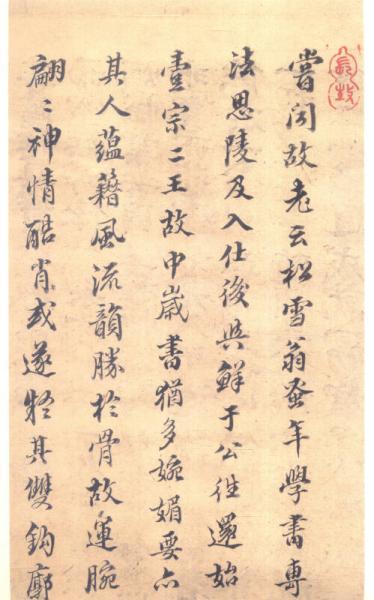 嘗聞故老云松雪翁蚤年學書專
法思陵及入仕後與鮮于公往還始
壹宗二王故中歲書猶多婉媚要亦
其人蘊藉風流韻勝於骨故運腕
翩〻神情酷肖或遂疑其雙鈎廓